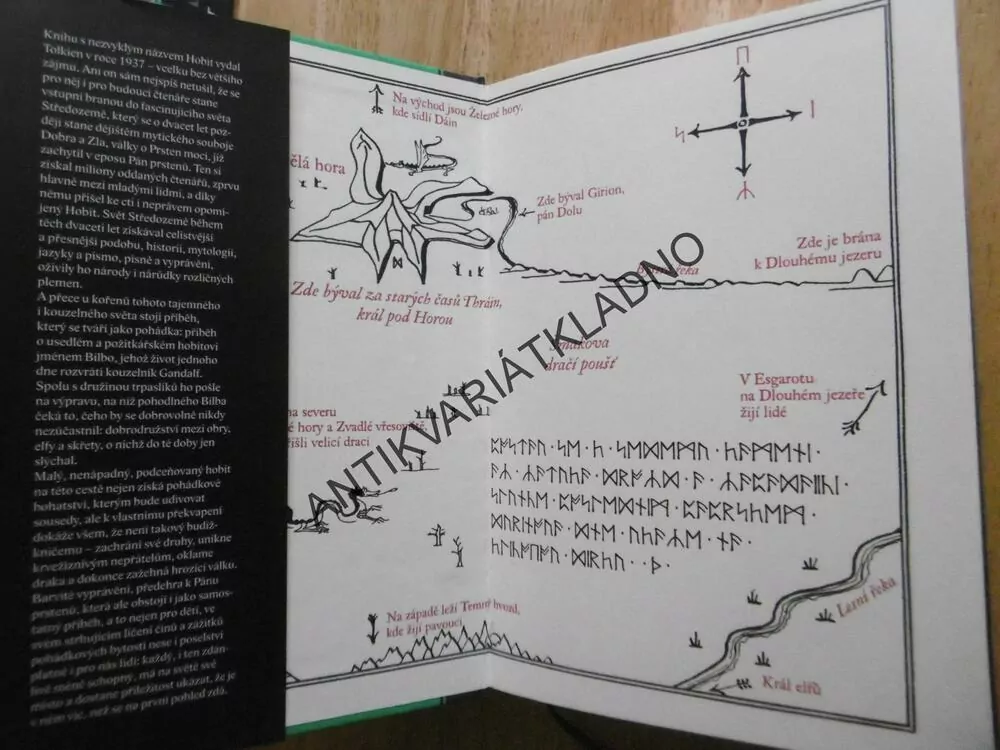 Knihu s nezvyklým názvem Hobit vydal
Tolkien v roce 1937 – vcelku bez většího
zájmu. Ani on sám nejspíš netušil, že se
pro něj i pro budoucí čtenáře stane
vstupní branou do fascinujícího světa
Středozemě, který se o dvacet let poz-
ději stane dějištěm mytického souboje
Dobra a Zla, války o Prsten moci, již
zachytil v eposu Pán prstenů. Ten si
získal miliony oddaných čtenářů, zprvu
hlavně mezi mladými lidmi, a díky
němu přišel ke cti i neprávem opomí-
jený Hobit. Svět Středozemě během
těch dvaceti let získával celistvější
a přesnější podobu, historii, mytologii,
jazyky a písmo, písně a vyprávění,
oživily ho národy i národy rozličných
plemen.
A přece u kořenů tohoto tajemného
i kouzelného světa stojí příběh,
který se tváří jako pohádka: příběh
o usedlém a požitkářském hobitovi
jménem Bilbo, jehož život jednoho
dne rozvrátí kouzelník Gandalf.
Spolu s družinou trpaslíků ho pošle
na výpravu, na níž pohodlného Bilba
čeká to, čeho by se dobrovolně nikdy
nezúčastnil: dobrodružství mezi obry,
elfy a skřety, o nichž do té doby jen
slýchal.
Malý, nenápadný, podceňovaný hobit
na této cestě nejen získá pohádkové
bohatství, kterým bude udivovat
sousedy, ale k vlastnímu překvapení
dokáže všem, že není takový budiž-
kničemu – zachrání své druhy, unikne
krvežíznivým nepřátelům, oklame
draka a dokonce zažehná hrozící válku.
Barvité vyprávění, předehra k Pánu
prstenů, která ale obstojí i jako samos-
tatný příběh, a to nejen pro děti, ve
svém strhujícím líčení činů a zážitků
pohádkových bytostí nese i poselství
platné i pro nás lidi: každý, i ten zdán-
livě méně schopný, má na světě své
místo a dostane příležitost ukázat, že je
v něm víc, než se na první pohled zdá.
Na východ jsou Železné hory,
kde sídlí Dáin
ělá hora
Zde býval Girion,
pán Dolu
Zde je brána
k Dlouhému jezeru
řeka
Zde býval za starých časů Thráin,
král pod Horou
Šmakova
dračí poušť
V Esgarotu
na Dlouhém jezeře
žijí lidé
na severu
é hory a Zvadlé vřesoviště,
išli velicí draci
Na západě leží Temný hvozd,
kde žijí pavouci
Lesní řeka
Král elfů
ANTIKVARIÁTKLADNO